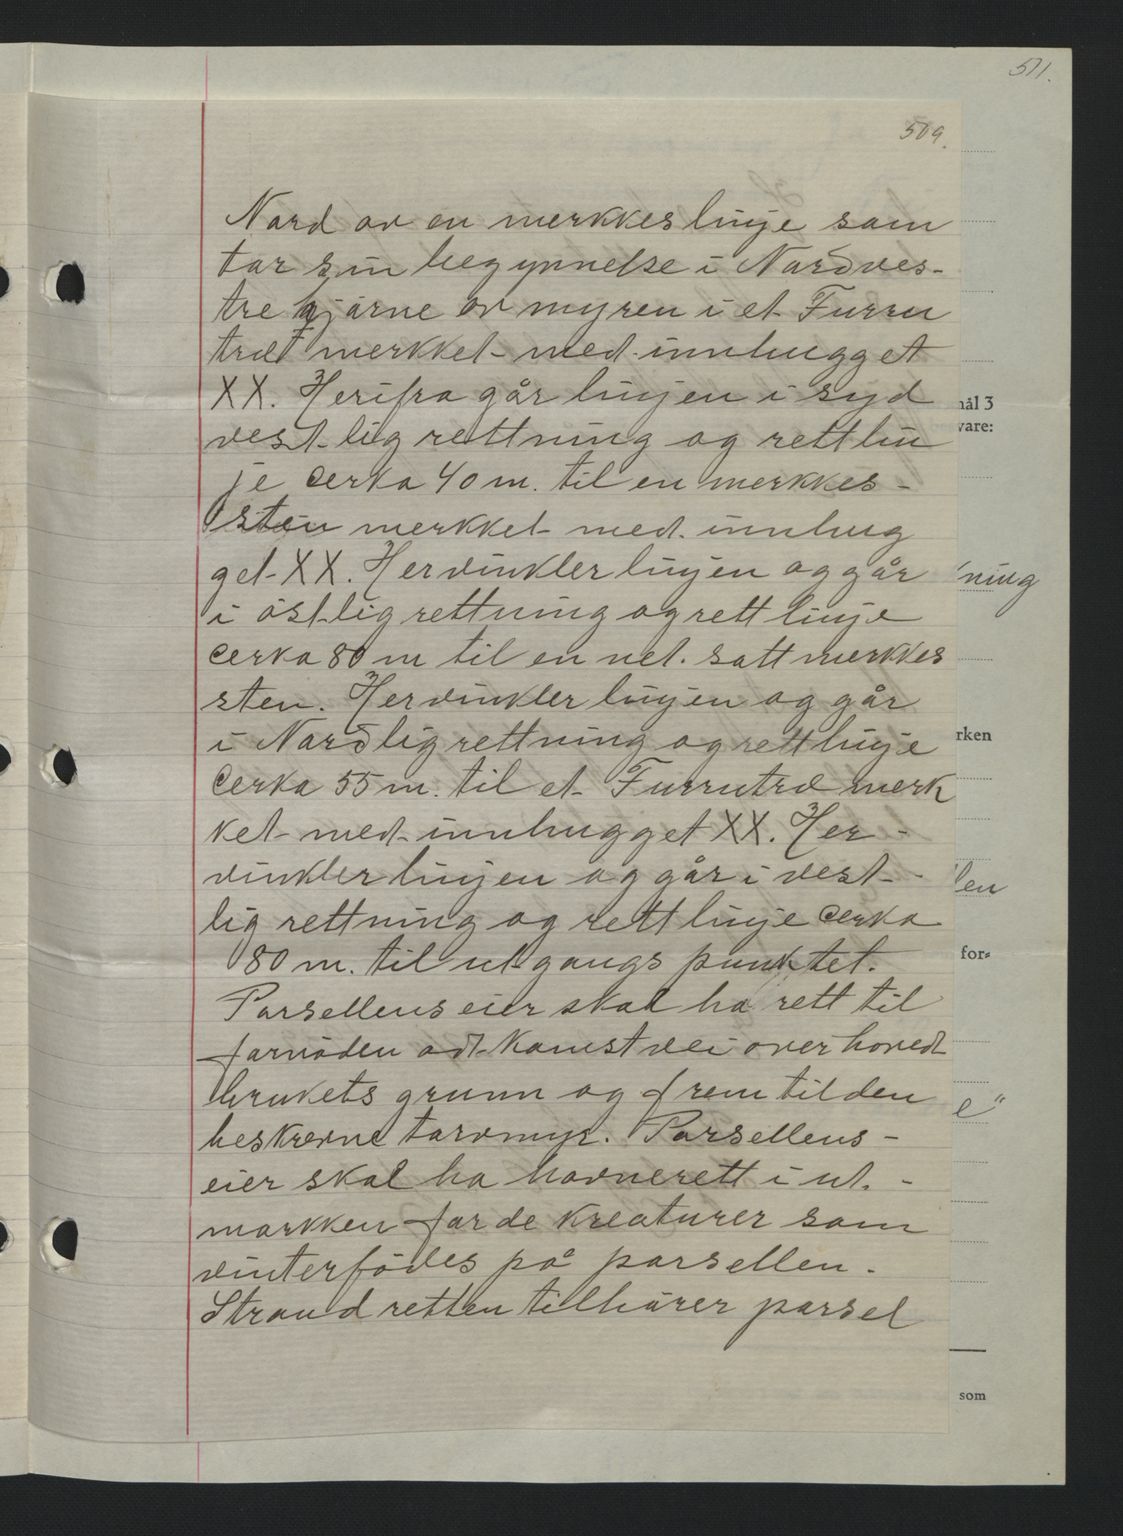 511.
509.
Nord av en merkkes linje som
tar sin begynnelse i Nordves-
tre hjörne av myren i et Furru
træ merkket med innhugget
XX. Herifra går linjen i syd
vestlig rettning og rett lin
je cerka 40 m. til en merkkes-
sten merkket med innhug
get XX. Her vinkler linjen og går
i östlig rettning og rett linje
cerka 80 m til en net. satt merkkes
sten. Her vinkler linjen og går
i Nordlig rettning og rett linje
cerka 55 m. til et Furrutræ merk
ket med innhugget XX. Her-
vinkler linjen og går i vest-
lig rettning og rett linje cerka
80 m. til utgangs punktet.
Parsellens eier skal ha rett til
fornöden adkomst vei over hoved
brukets grunn og frem til den
beskrevne torvmyr. Parsellens-
eier skal ha havnerett i ut.-
markken for de kreaturer som
vinterfödes på parsellen.
Strand retten tilhörer parsel
mål 3
vare:
ning
rken
len
for=
e"
som